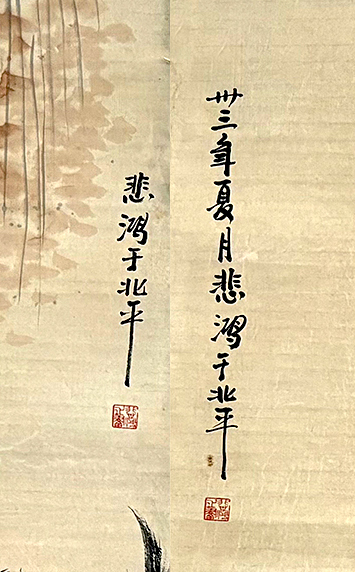 卅三年夏月悲鴻于北平
悲鴻于北平